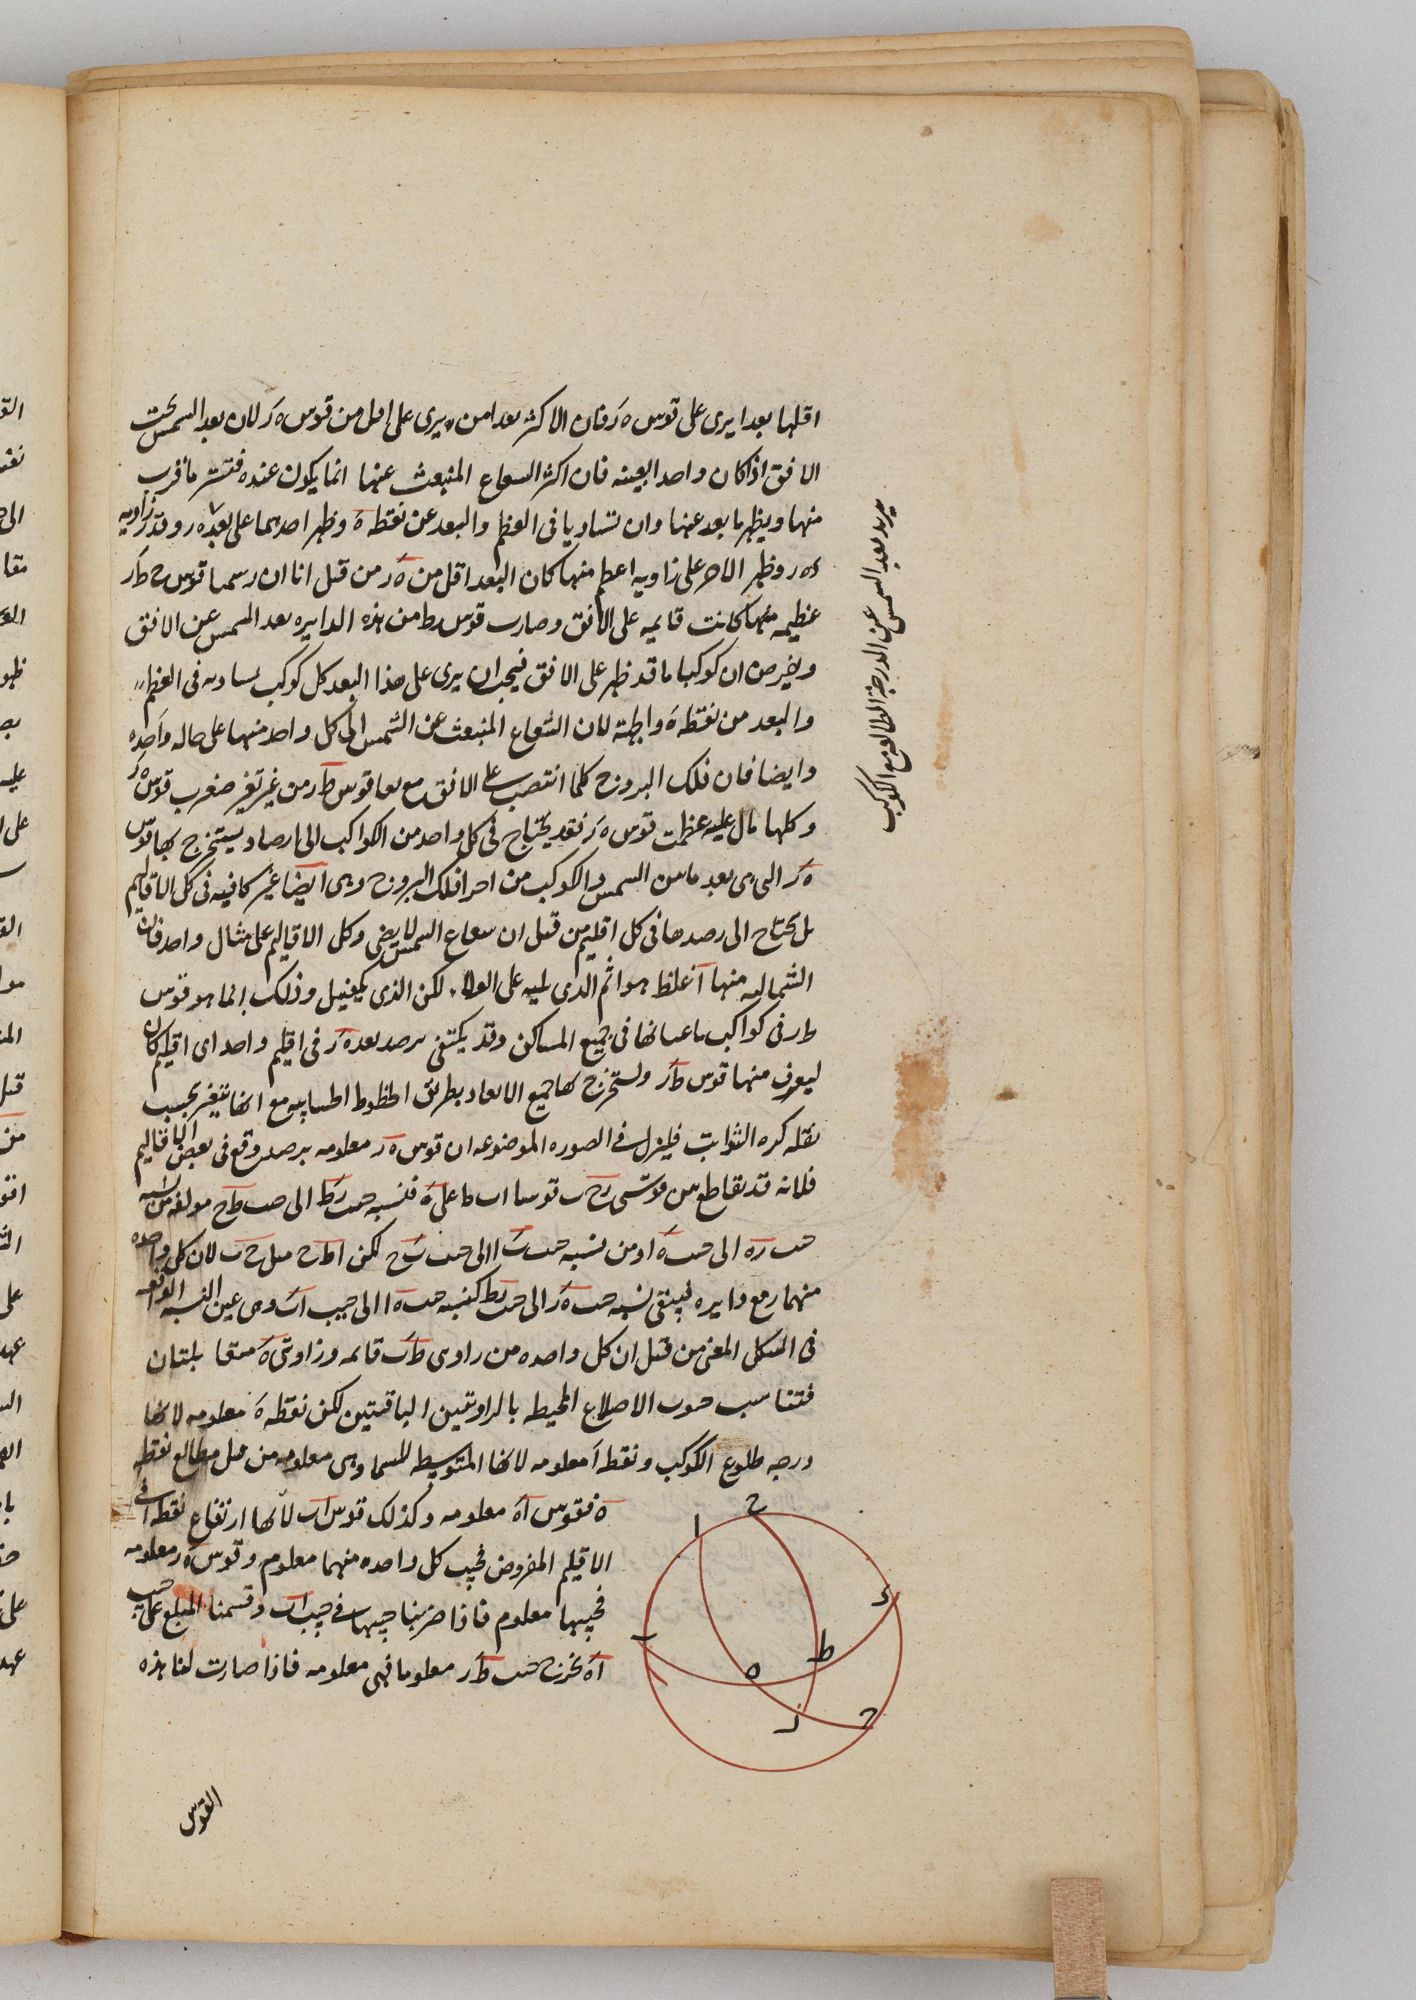 اقلها بعدا يرى على قوس ه ر فان الاكثر بعدا من ه يرى على اقل من قوس ه ر لان بعد الشمس تحت
الافق اذا كان واحدا بعينه فان اكثر الشعاع المنبعث عنها انما يكون عنده فتستر ما قرب
منها ويظهر ما بعد عنها وان تساويا في العظم والبعد عن نقطة ه وظهر احدهما على بعد ه ر وقدر زاويه
ه ر وظهر الاخر على زاويه اعظم منها كان البعد اقل من ه ر من قبل انا ان رسمنا قوس ح ط ر
عظيمه منها كانت قايمه على الافق وصارت قوس ر ط من هذه الدايره بعد الشمس عن الافق
ان كوكبا ما قد ظهر على الافق فيجب ان يرى على هذا البعد كل كوكب يساويه في العظم
والبعد من نقطة ه لان الشعاع المنبعث عن الشمس الى كل واحد منها على حاله واحده
وايضا فان فلك البروج كلما انتصب على الافق مع بقا قوس ط ر من غير تغير صغرت قوس ه ر
وكلما مال عليه عظمت قوس ه ر فقد يحتاج في كل واحد من الكواكب الى ارصاد يستخرج بها قوس
ه ر التي هى بعد ما بين الشمس والكوكب من اجزا فلك البروج وهى ايضا غير كافيه في كل الاقاليم
بل يحتاج الى رصدها في كل اقليم من قبل ان شعاع الشمس لا يضى وكل الاقاليم على مثال واحد فان
الشماليه منها اغلظ هوا ثم الذى يليه على الولا لكن الذى يكفينا وذلك انما هو قوس
ط ر في كواكب باعيانها في جميع المساكن وقد يكتفى برصد بعد ه ر في اقليم واحد اى اقليم كان
ليعرف منها قوس ط ر ونستخرج بها جميع الابعاد بطريق الخطوط الحسابيه مع انها تتغير بحسب
نقله كره الثوابت فلينزل في الصوره الموضوعه ان قوس ه ر معلومه برصد وقع في بعض الاقاليم
فلانه قد تقاطع بين قوسى ر ح ح ب قوسا ا ر ط ب على ه فنسبه جيب ر ط الى جيب ط ح مولفه من نسبه
جيب ر ه الى جيب ه ا ومن نسبه جيب ب ا الى جيب ب ح لكن ا ط ح مثل ح ب لان كل واحده
منهما ربع دايره فيبقى نسبه جيب ه ر الى جيب ر ط كنسبه جيب ه ا الى جيب ا ب وهى عين النسبه الواقعه
في الشكل المغنى من قبل ان كل واحده من زاويتى ط ب قائمه وزاويتى ه متقابلتان
فتتناسب جيوب الاضلاع المحيطه بالزاويتين الباقيتين لكن نقطة ه معلومه لانها
درجه طلوع الكوكب ونقطة ا معلومه لانها المتوسطه للسما وهى معلومه من قبل مطالع نقطه
ه فقوس ا ه معلومه وكذلك قوس ا ب لانها ارتفاع نقطه ا في
الاقليم المفروض فجيب كل واحده منهما معلوم وقوس ه ر معلومه
فجيبها معلوم فاذا ضربنا جيبها في جيب ا ب وقسمنا المبلغ على جيب
ا ه يخرج جيب ط ر معلوما فهى معلومه فاذا صارت لنا هذه
القوس
يريد بعد الشمس عن الدرجة الطالعه مع الكوكب
ح
ا
د
ب
ط
ه
ر
ج